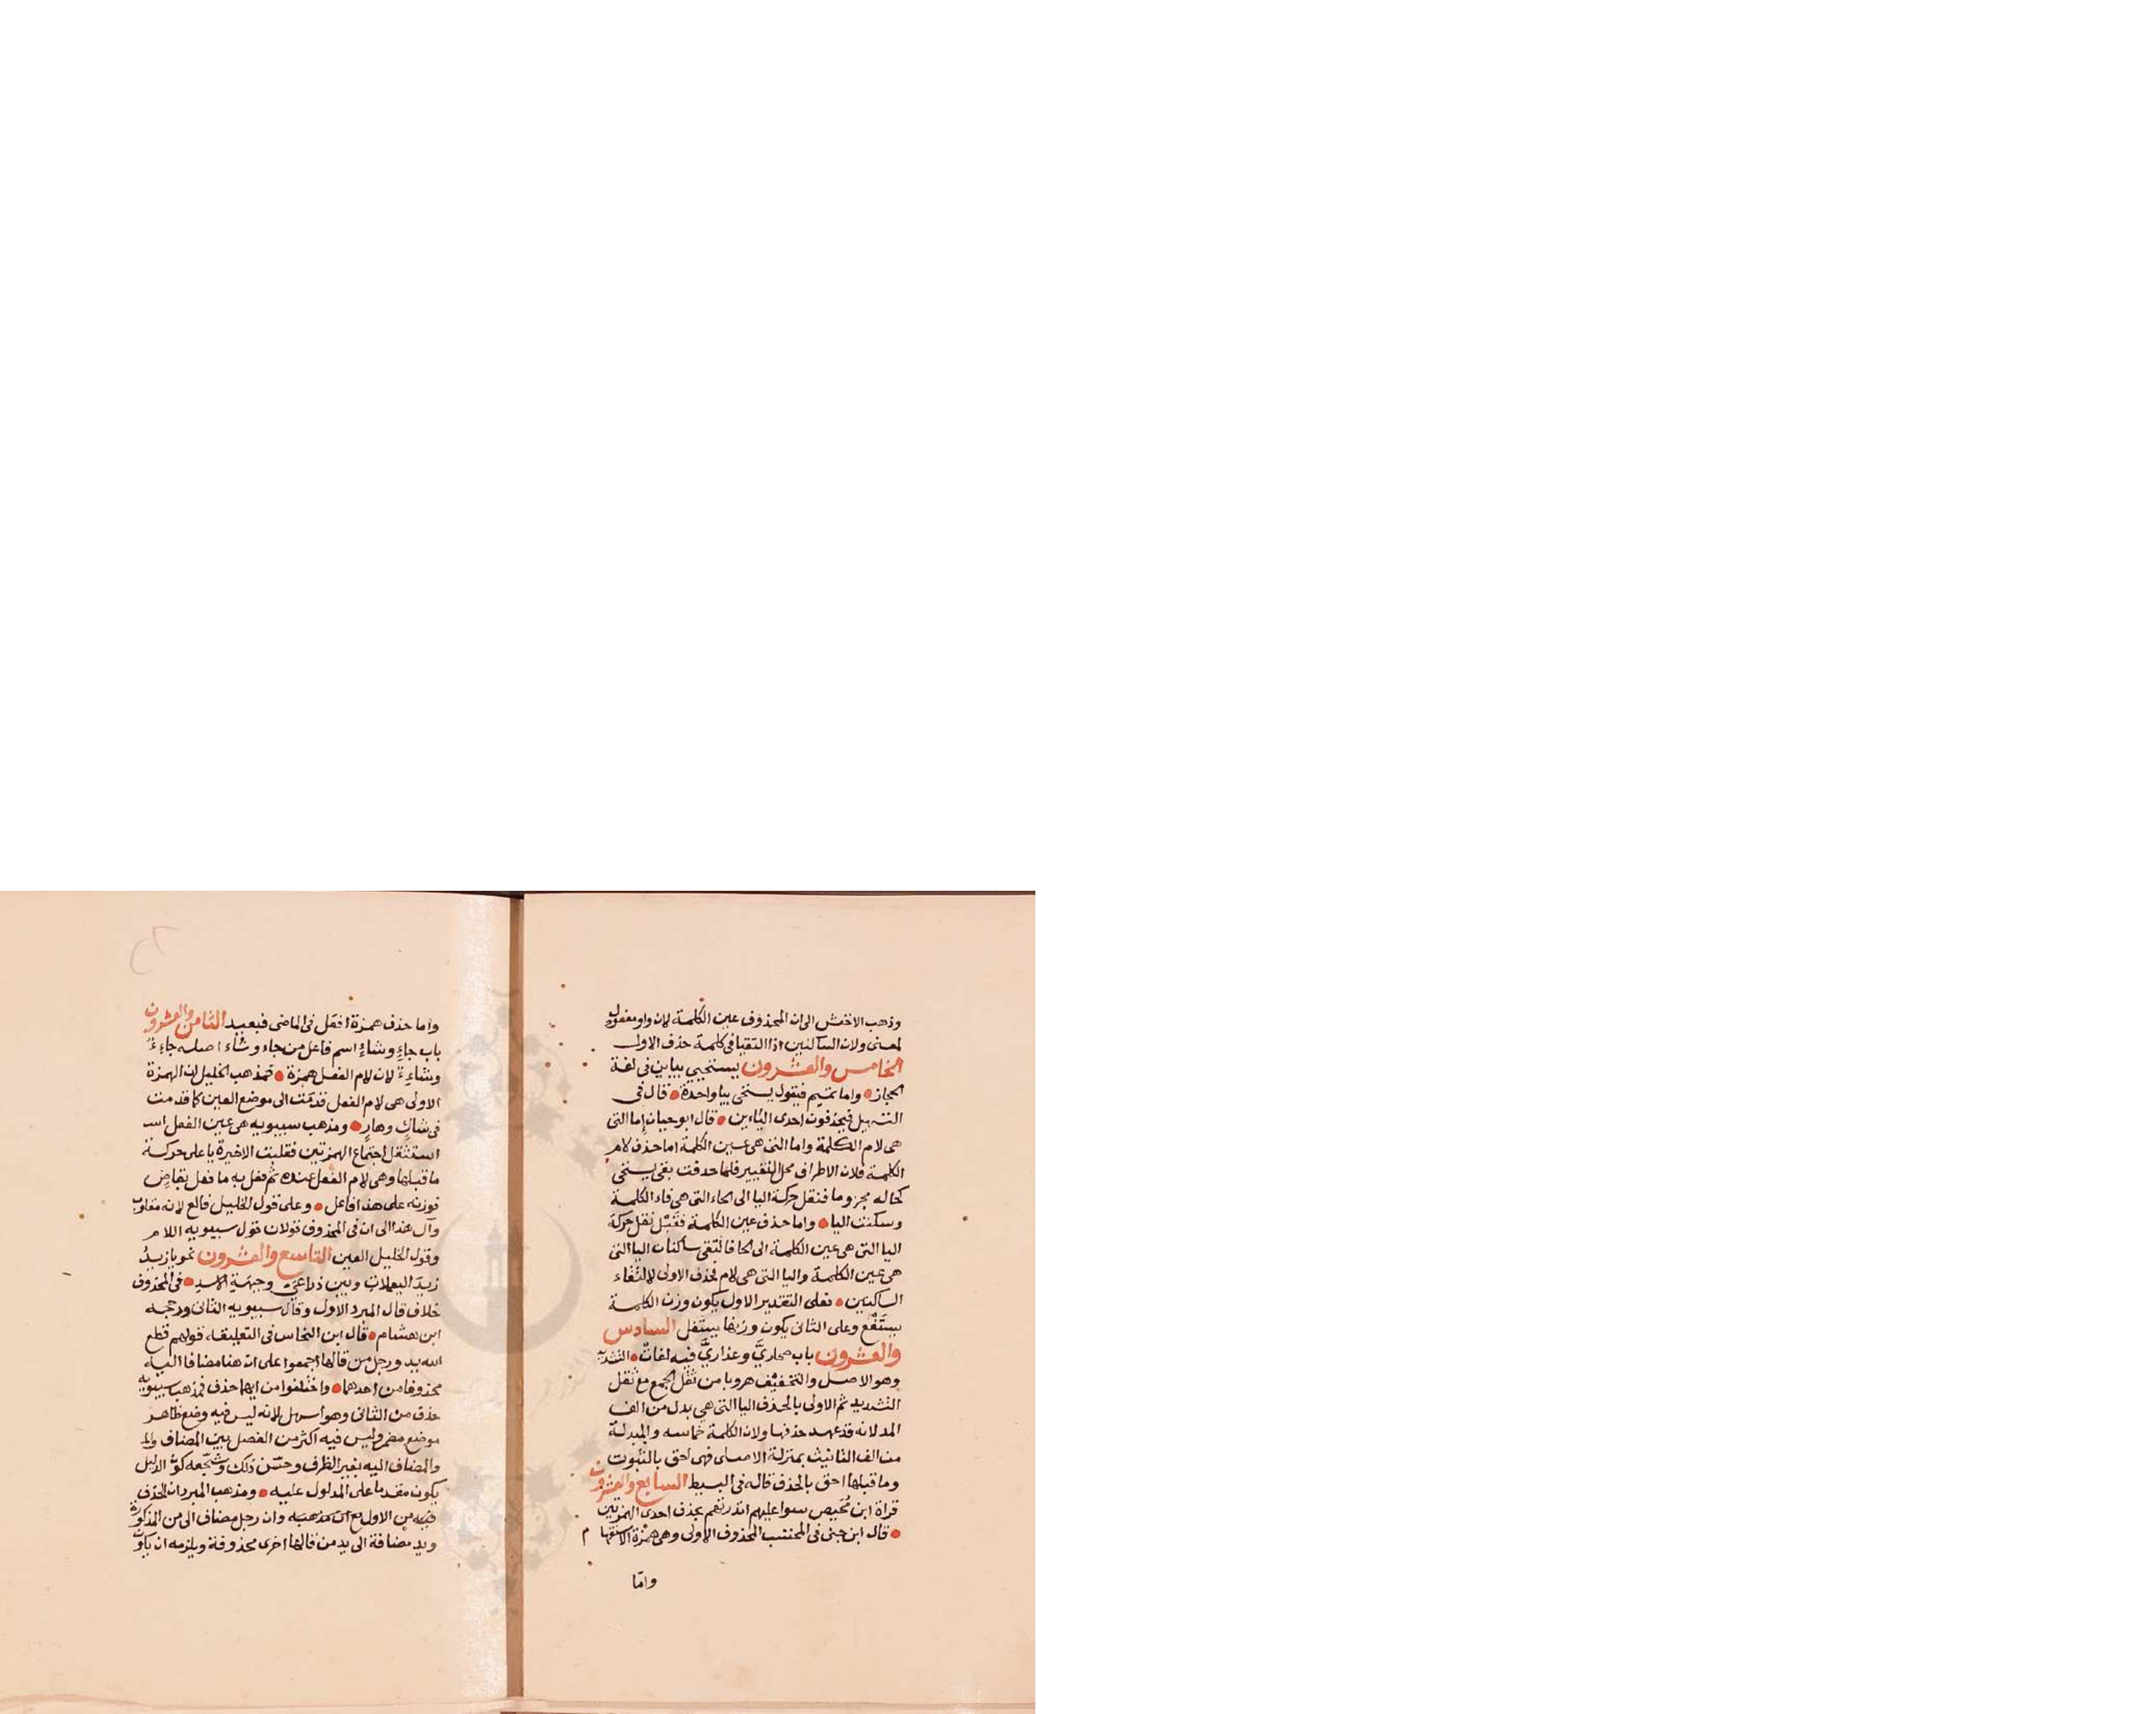 وذهب الاخفش الى ان المحذوف عين الكلمة لان واو مفعول
لمعنى ولان الساكنين اذا التقيا فى كلمة حذف الاول
الخامس والعشرون يستحيي بيايين فى لغة
الحجاز واما تميم فيقول يستحى بيا واحدة قال فى
التسهيل فيحذفون احدى اليائين قال ابو حيان اما التى
هى لام الكلمة واما التى هى عين الكلمة اما حذف لام
الكلمة فلان الاطراف محل التغيير فلما حذفت بقى يستحى
كحاله مجزوما فنقل حركة اليا الى الحاء التى هى فاء الكلمة
وسكنت اليا واما حذف عين الكلمة فقبل نقل حركة
اليا التى هى عين الكلمة الى الحا فالتقى ساكنان اليا التى
هى عين الكلمة واليا التى هى لام فحذف الاولى لالتقاء
الساكنين فعلى التقدير الاول يكون وزن الكلمة
يستفع وعلى الثانى يكون وزنها يستفل السادس
والعشرون باب صحارىّ وعذارىّ فيه لغات التشديد
وهو الاصل والتخفيف هروبا من ثقل الجمع مع ثقل
التشديد ثم الاولى بالحذف اليا التى هى بدل من الف
المد لانه قد عهد حذفها ولان الكلمة خماسه والمبدلة
من الف التانيث بمنزلة الاصلى فهى احق بالثبوت
وما قبلها احق بالحذف قاله فى البسيط السابع والعشرون
قراة ابن مُحَيصِن سوا عليهم انذرتهم بحذف احدى الهمزتين
قال ابن جنى فى المحتسب المحذوف الاولى وهى همزة الاستفها م
واما
واما حذف همزة افعل فى الماضى فبعيد الثامن والعشرون
باب جاءٍ وشاءٍ اسم فاعل من جاء وشاء اصله جاءِءٌ
وشاءِءٌ لان لام الفعل همزة فمذهب الخليل ان الهمزة
الاولى هى لام الفعل قدمت الى موضع العين كما قدمت
فى شاكٍ وهارٍ ومذهب سيبويه هى عين الفعل
استثقل اجتماع الهمزتين فقلبت الاخيرة يا على حركة
ما قبلها وهى لام الفعل عنده ثم فعل به ما فعل بقاضٍ
فوزنه على هذا فاعل وعلى قول الخليل فالع لانه مقلوب
وآل هذا الى ان فى المحذوف قولان قول سيبويه اللام
وقول الخليل العين التاسع والعشرون نحو يا زيدُ
زيدَ اليعملات وبين ذراعى وجبهة الاسد فى المحذوف
خلاف قال المبرد الاول وقال سيبويه الثانى ورجحه
ابن هشام قال ابن النحاس فى التعليقه قولهم قطع
الله يد ورجل من قالها اجمعوا على ان هنا مضافا اليه
محذوفا من احدهما واختلفوا من ايهما حذف فمذهب سيبويه
حذف من الثانى وهو اسهل لانه ليس فيه وضع ظاهر
موضع مضمر وليس فيه اكثر من الفصل بين المضاف والم
والمضاف اليه بغير الظرف وحسّن ذلك وشجعه كون الدليل
يكون مقدما على المدلول عليه ومذهب المبرد ان الحذف
من الاول مع ان مذهبه وان رجل مضاف الى من المذكورة
ويد مضافة الى يد من قالها اخرى محذوفة ويلزمه ان يكون